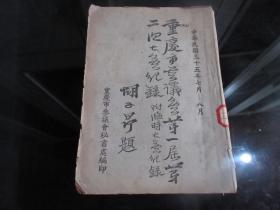 中華民國三十五年七月 八月
重慶市參議會第一屆第
二次大會紀錄 附臨時大會紀錄
胡子昂題
重慶市參議會秘書處編印